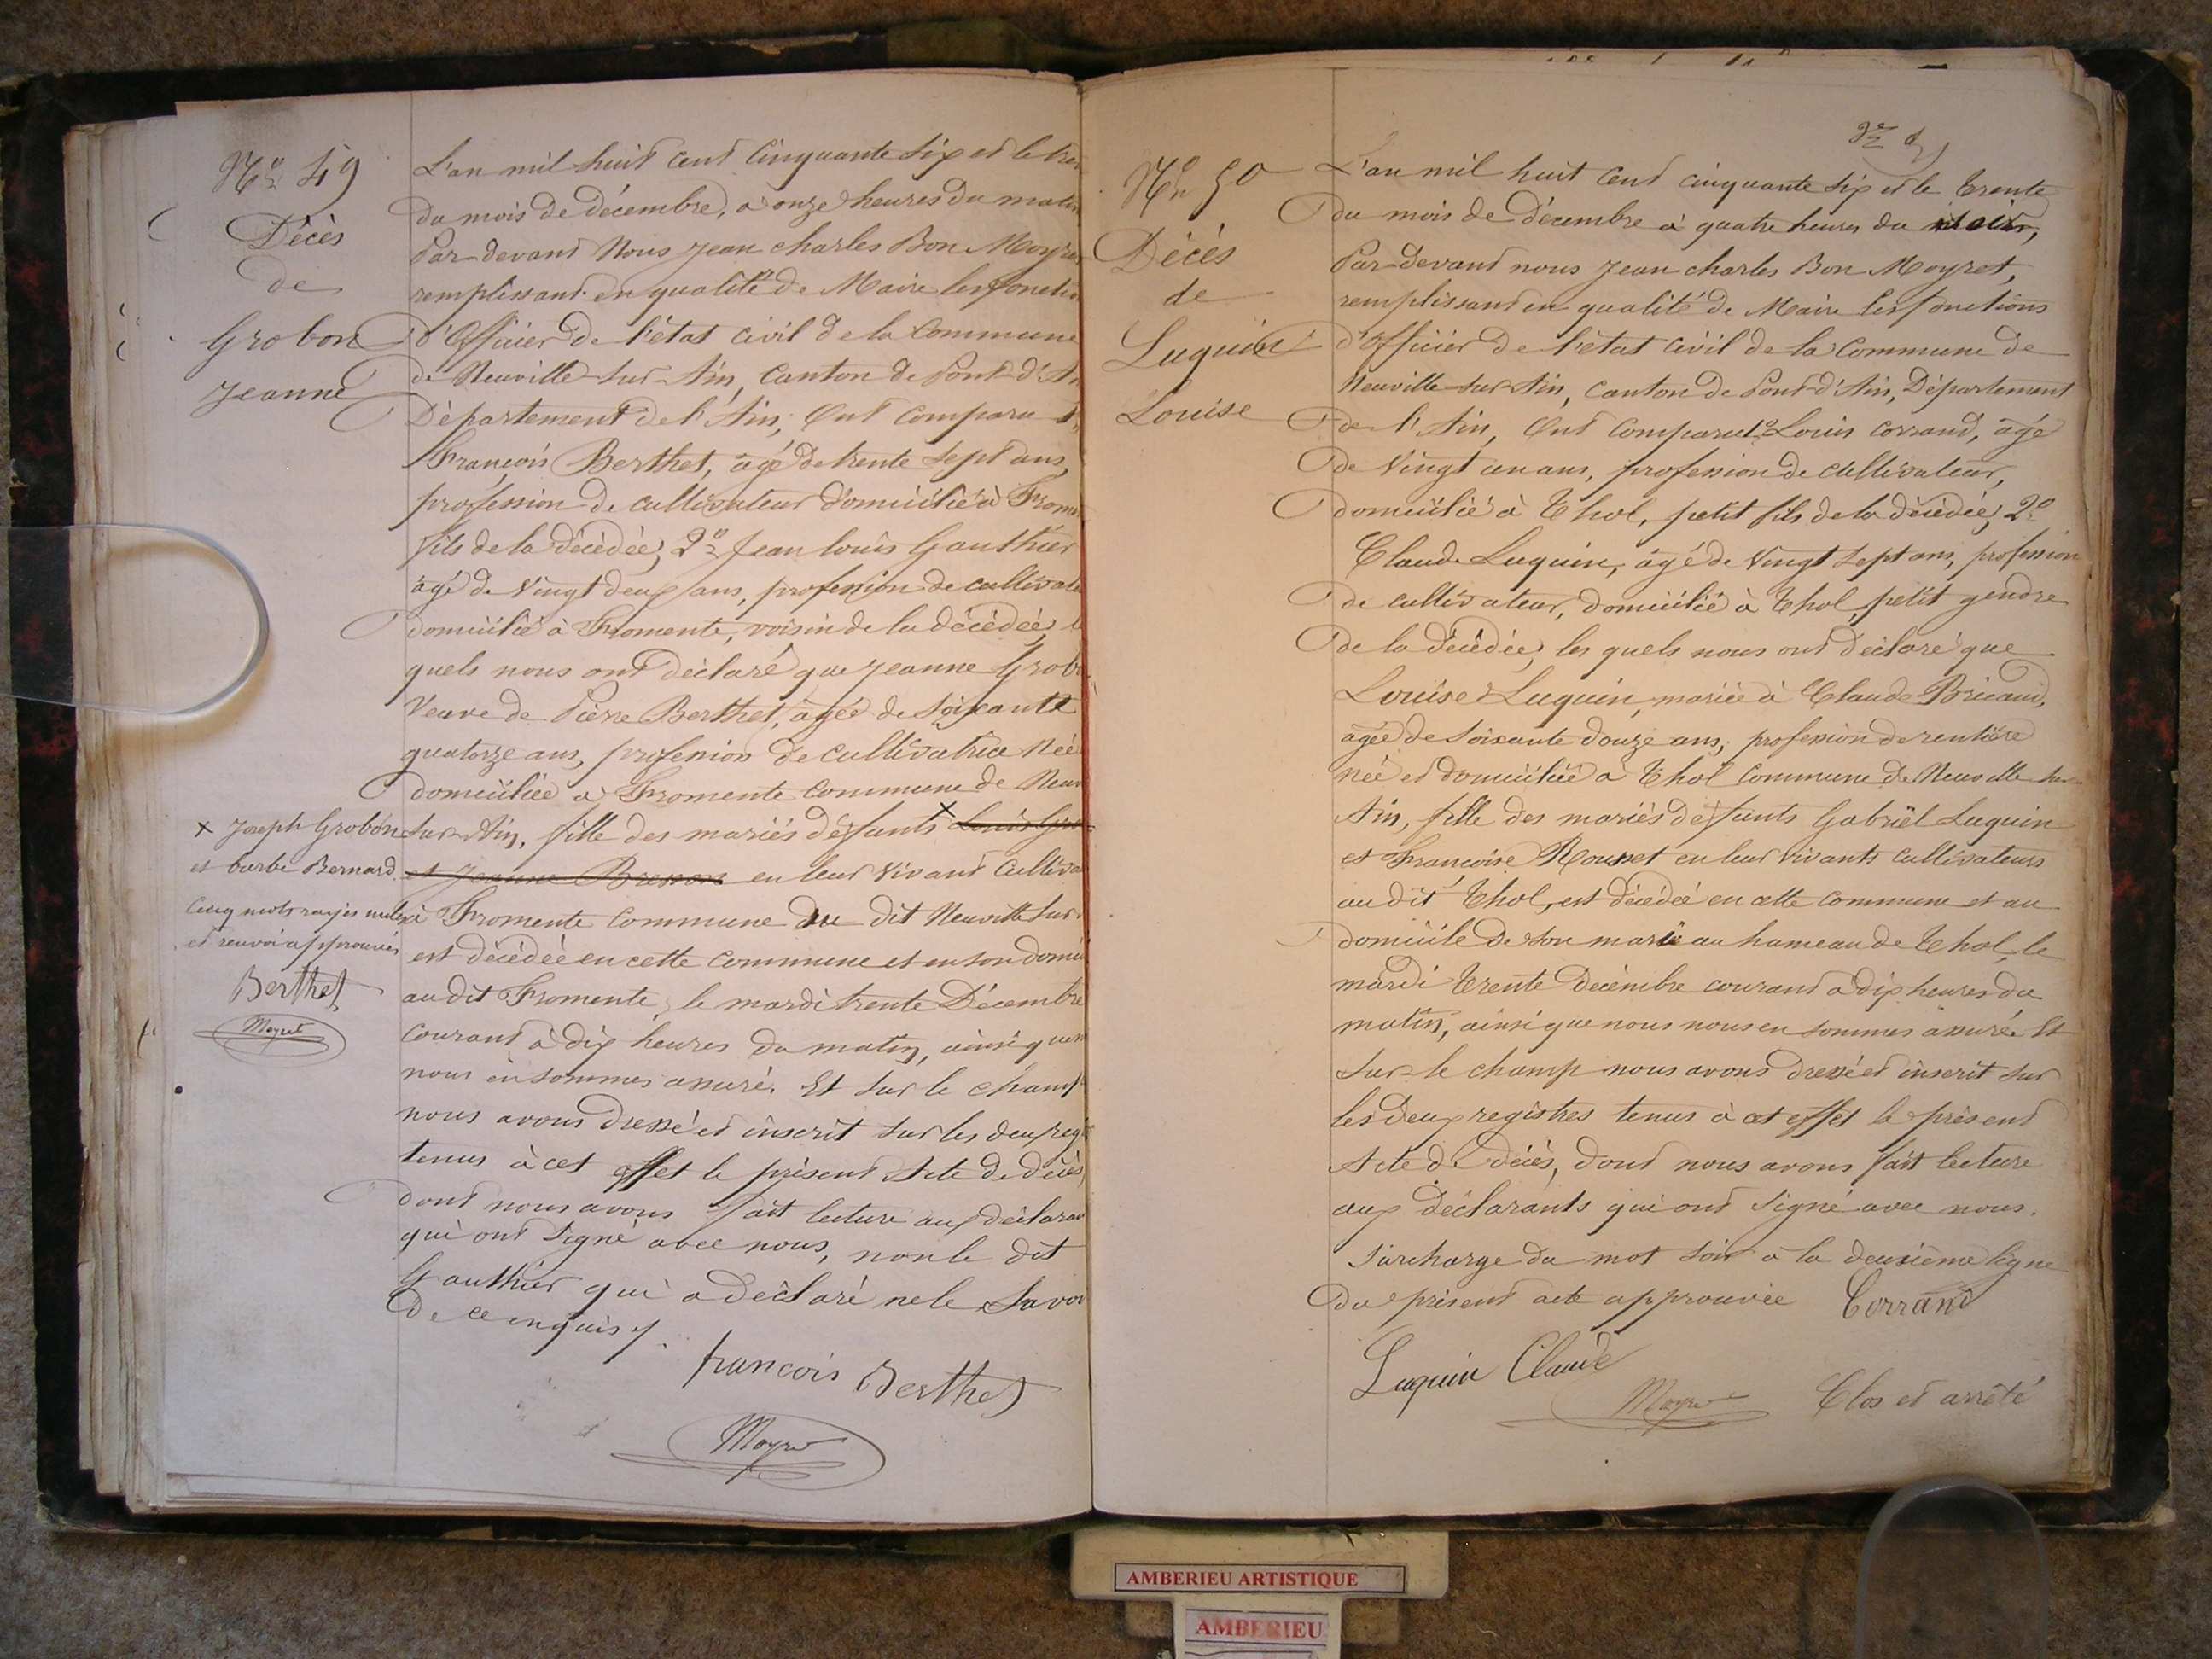 No 49
Décès
de
Grobon
Jeanne
L'an mil huit cent cinquante six et le
du mois de décembre, à onze heures du matin
Par devant Nous Jean Charles Bon Moyret
remplissant en qualité de Maire les fonctio
d'Officier de l'état civil de la Commune
de Neuville sur Ain, Canton de Pont d'A
Département de l'Ain; Ont Comparu 1o
François Berthet, âgé de trente sept ans,
profession de cultivateur domicilié à From
fils de la décédée, 2o Jean louis Gauthier
âgé de Vingt deux ans, profession de cultivate
domicilié à Fromente, voisin de la décédée, l
quels nous ont déclaré que Jeanne Grob
Veuve de Pierre Berthet, âgée de Soixante
quatorze ans, profession de cultivatrice Née
domiciliée à Fromente Commune de Neuv
sur Ain, fille des mariés défunts × Louis Gro
et Jeanne Bresson en leur Vivant Cultiva
à Fromente Commune du dit Neuville sur
est décédée en cette Commune et en son domic
au dit Fromente, le mardi trente Décembre
Courant à dix heures du matin, ainsi que n
nous en sommes assuré. Et sur le champ
nous avons dressé et inscrit sur les deux regi
tenus à cet effet le présent Acte de décès,
dont nous avons fait lecture aux déclaran
qui ont Signé avec nous, non le dit
Gauthier qui a déclaré ne le Savoi
de ce enquis
× Joseph Grobon
et barbe Bernard
Cinq mots rayés nuls
et renvoi approuvés
Berthet
Moyret
francois Berthet
Moyret
No 50
Décès
de
Luquin
Louise
L'an mil huit cent cinquante six et le trente
du mois de décembre à quatre heures du soir,
Par devant nous Jean Charles Bon Moyret,
remplissant en qualité de Maire les fonctions
d'Officier de l'état civil de la Commune de
Neuville sur Ain, Canton de Pont d'Ain, Département
de l'Ain, Ont Comparu 1o Louis Corrand, âgé
de Vingt un ans, profession de cultivateur,
domicilié à Thol, petit fils de la décédée, 2o
Claude Luquin, âgé de Vingt Sept ans, profession
de cultivateur, domicilié à Thol, petit gendre
de la décédée, les quels nous ont déclaré que
Louise Luquin, mariée à Claude Bricaud,
âgée de Soixante douze ans, profession de rentière
née et domiciliée à Thol Commune de Neuville sur
Ain, fille des mariés défunts Gabriël Luquin
et Françoise Rousset en leur vivants cultivateurs
au dit Thol, est décédée en cette Commune et au
domicile de son marie au hameau de Thol, le
mardi trente Décembre courant à dix heures du
matin, ainsi que nous nous en sommes assuré. Et
Sur le champ nous avons dressé et inscrit sur
les deux registres tenus à cet effet le présent
Acte de décès, dont nous avons fait lecture
aux Déclarants qui ont Signé avec nous.
Surcharge du mot soir à la deuxième ligne
du présent acte approuvée Corrand
Luquin Claude
Moyret
Clos et arrêté
AMBERIEU ARTISTIQUE
AMBERIEU